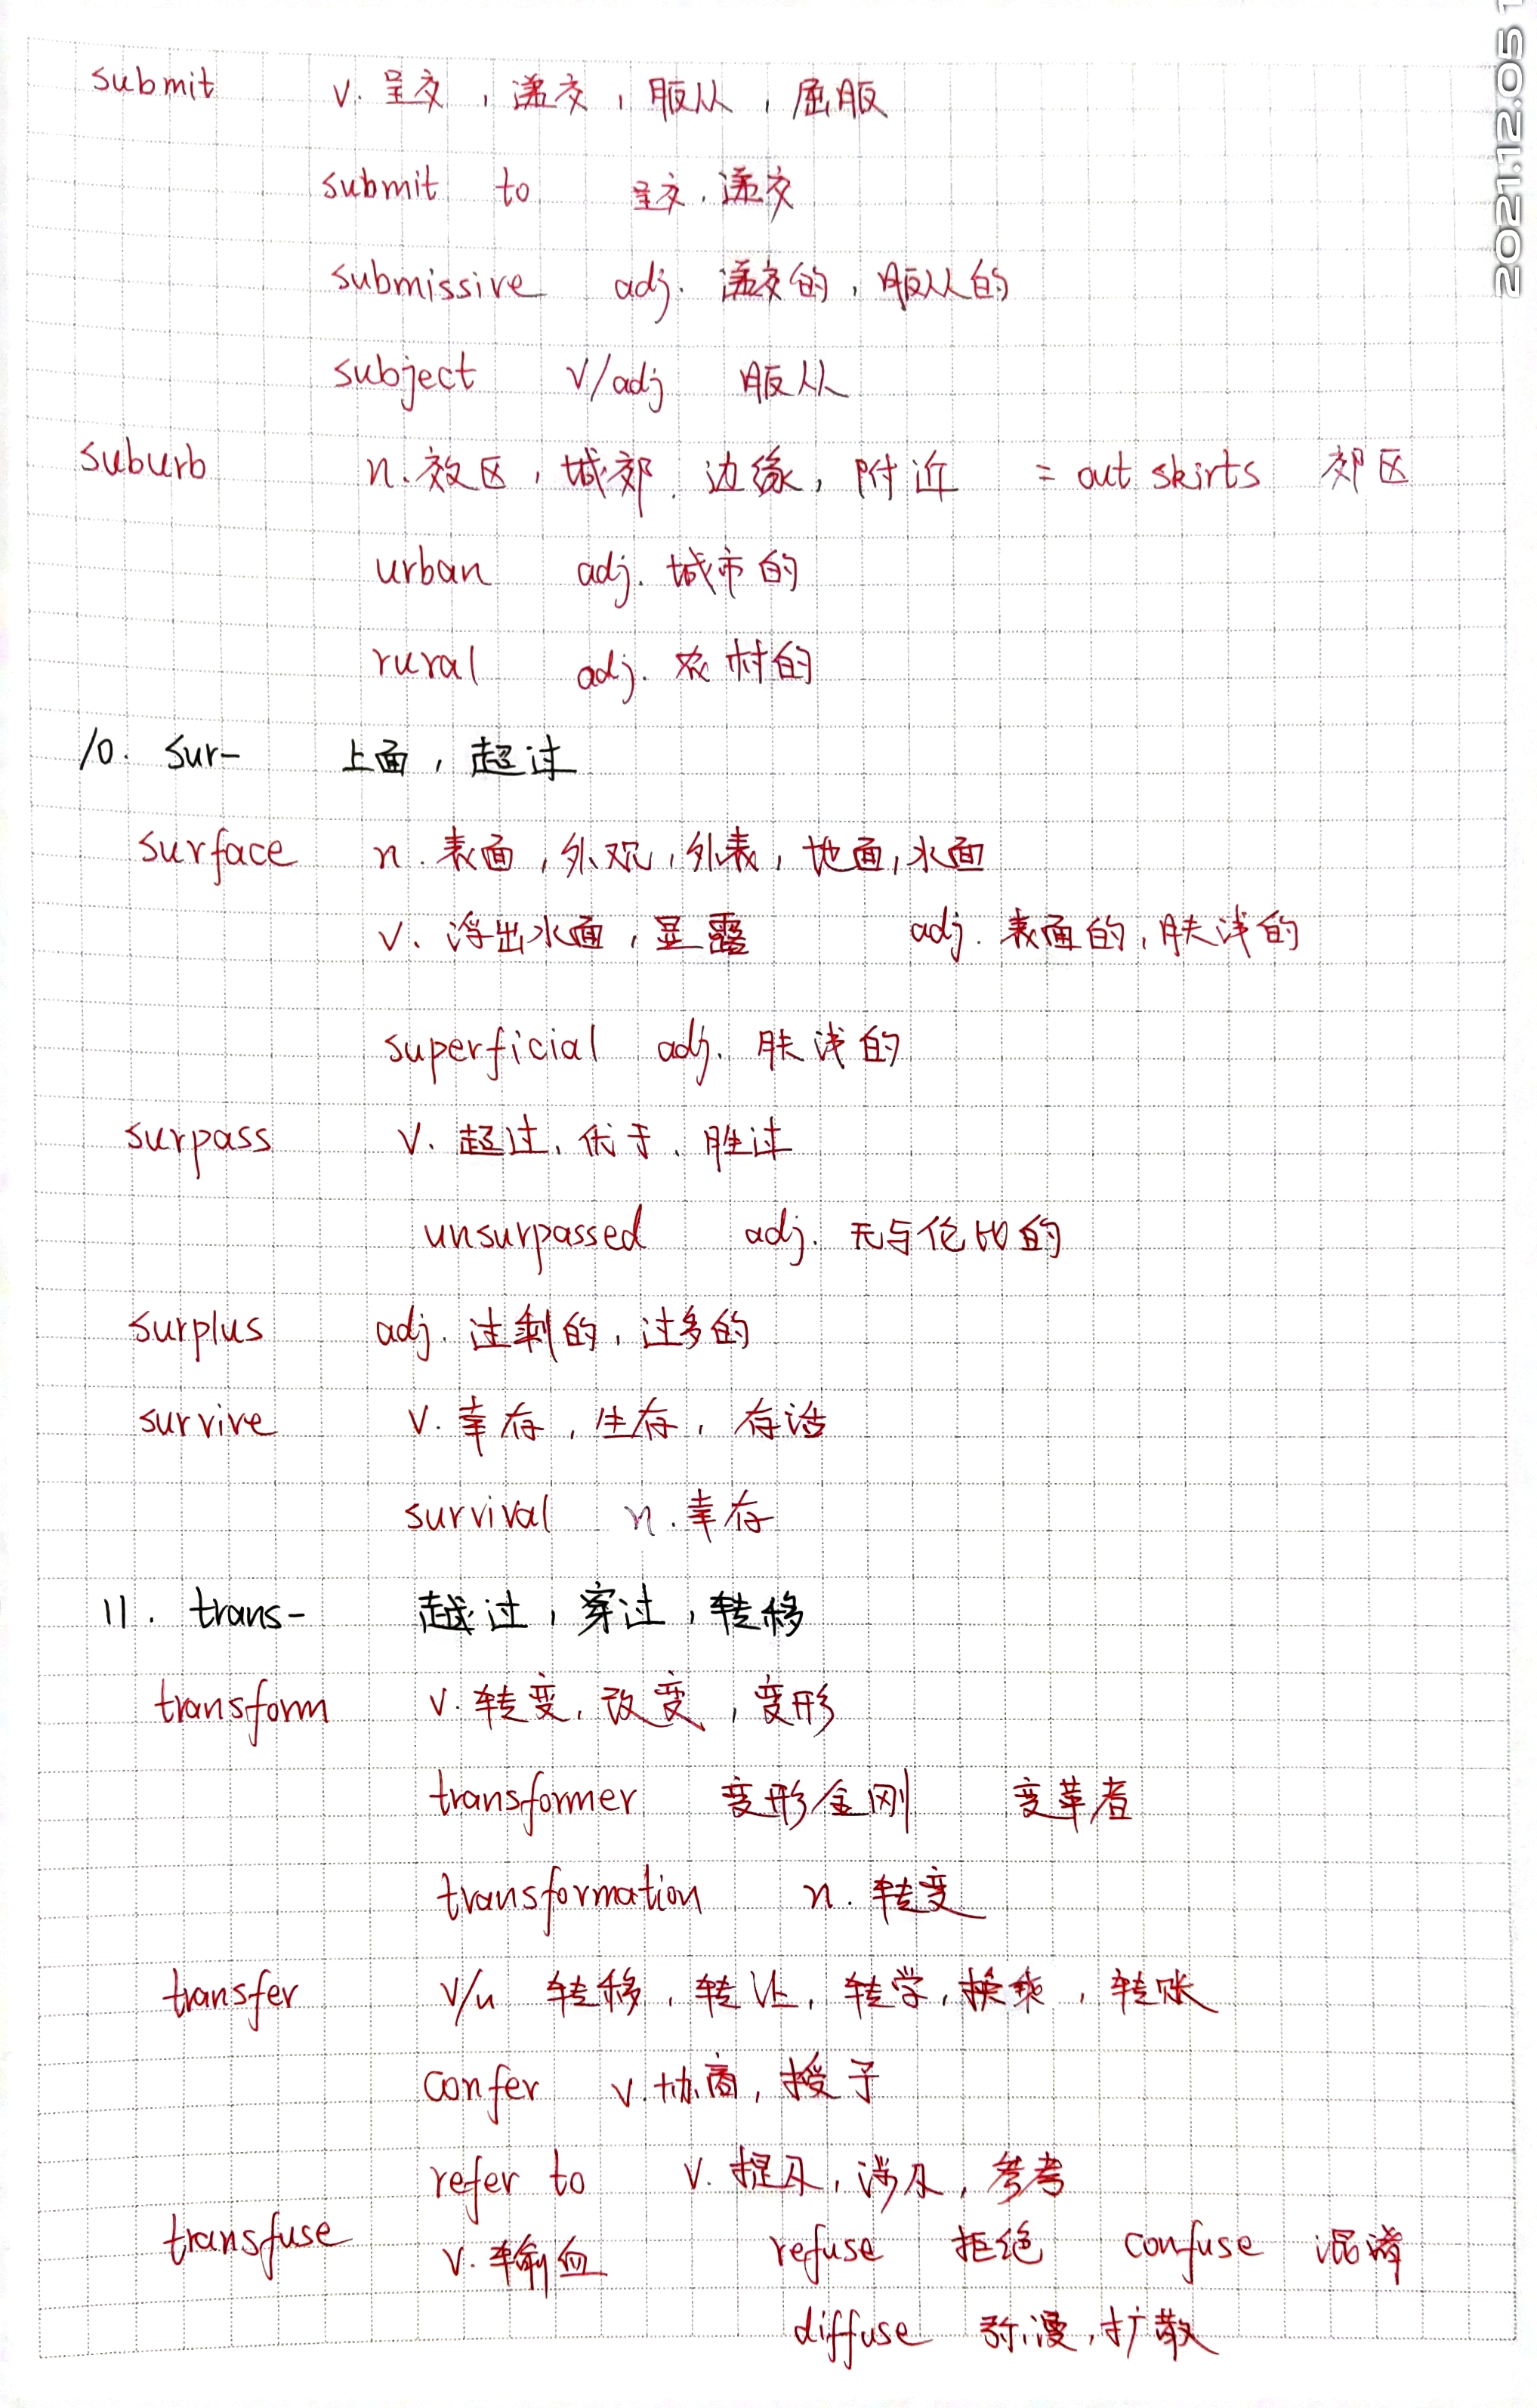 2021.12.05 1
submit v. 呈交，递交，服从，屈服
submit to 呈交，递交
submissive adj. 递交的，服从的
subject v/adj 服从
suburb n. 效区，城郊，边缘，附近 = out skirts 郊区
urban adj. 城市的
rural adj. 农村的
10. sur- 上面，超过
surface n. 表面，外观，外表，地面，水面
v. 浮出水面，显露 adj. 表面的，肤浅的
superficial adj. 肤浅的
surpass v. 超过，优于，胜过
unsurpassed adj. 无与伦比的
surplus adj. 过剩的，过多的
survive v. 幸存，生存，存活
survival n. 幸存
11. trans- 越过，穿过，转移
transform v. 转变，改变，变形
transformer 变形金刚 变革者
transformation n. 转变
transfer v/n 转移，转让，转学，换乘，转账
confer v. 协商，授予
refer to v. 提及，涉及，参考
transfuse v. 输血 refuse 拒绝 confuse 混淆
diffuse 弥漫，扩散